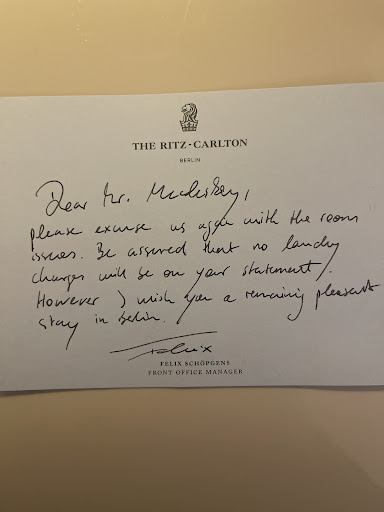 THE RITZ·CARLTON
BERLIN
Dear Mr.
please excuse us again with the room
issues. Be assured that no laundry
charges will be on your statement.
However I wish you a remaining pleasant
stay in Berlin.
Felix
FELIX SCHÖPGENS
FRONT OFFICE MANAGER